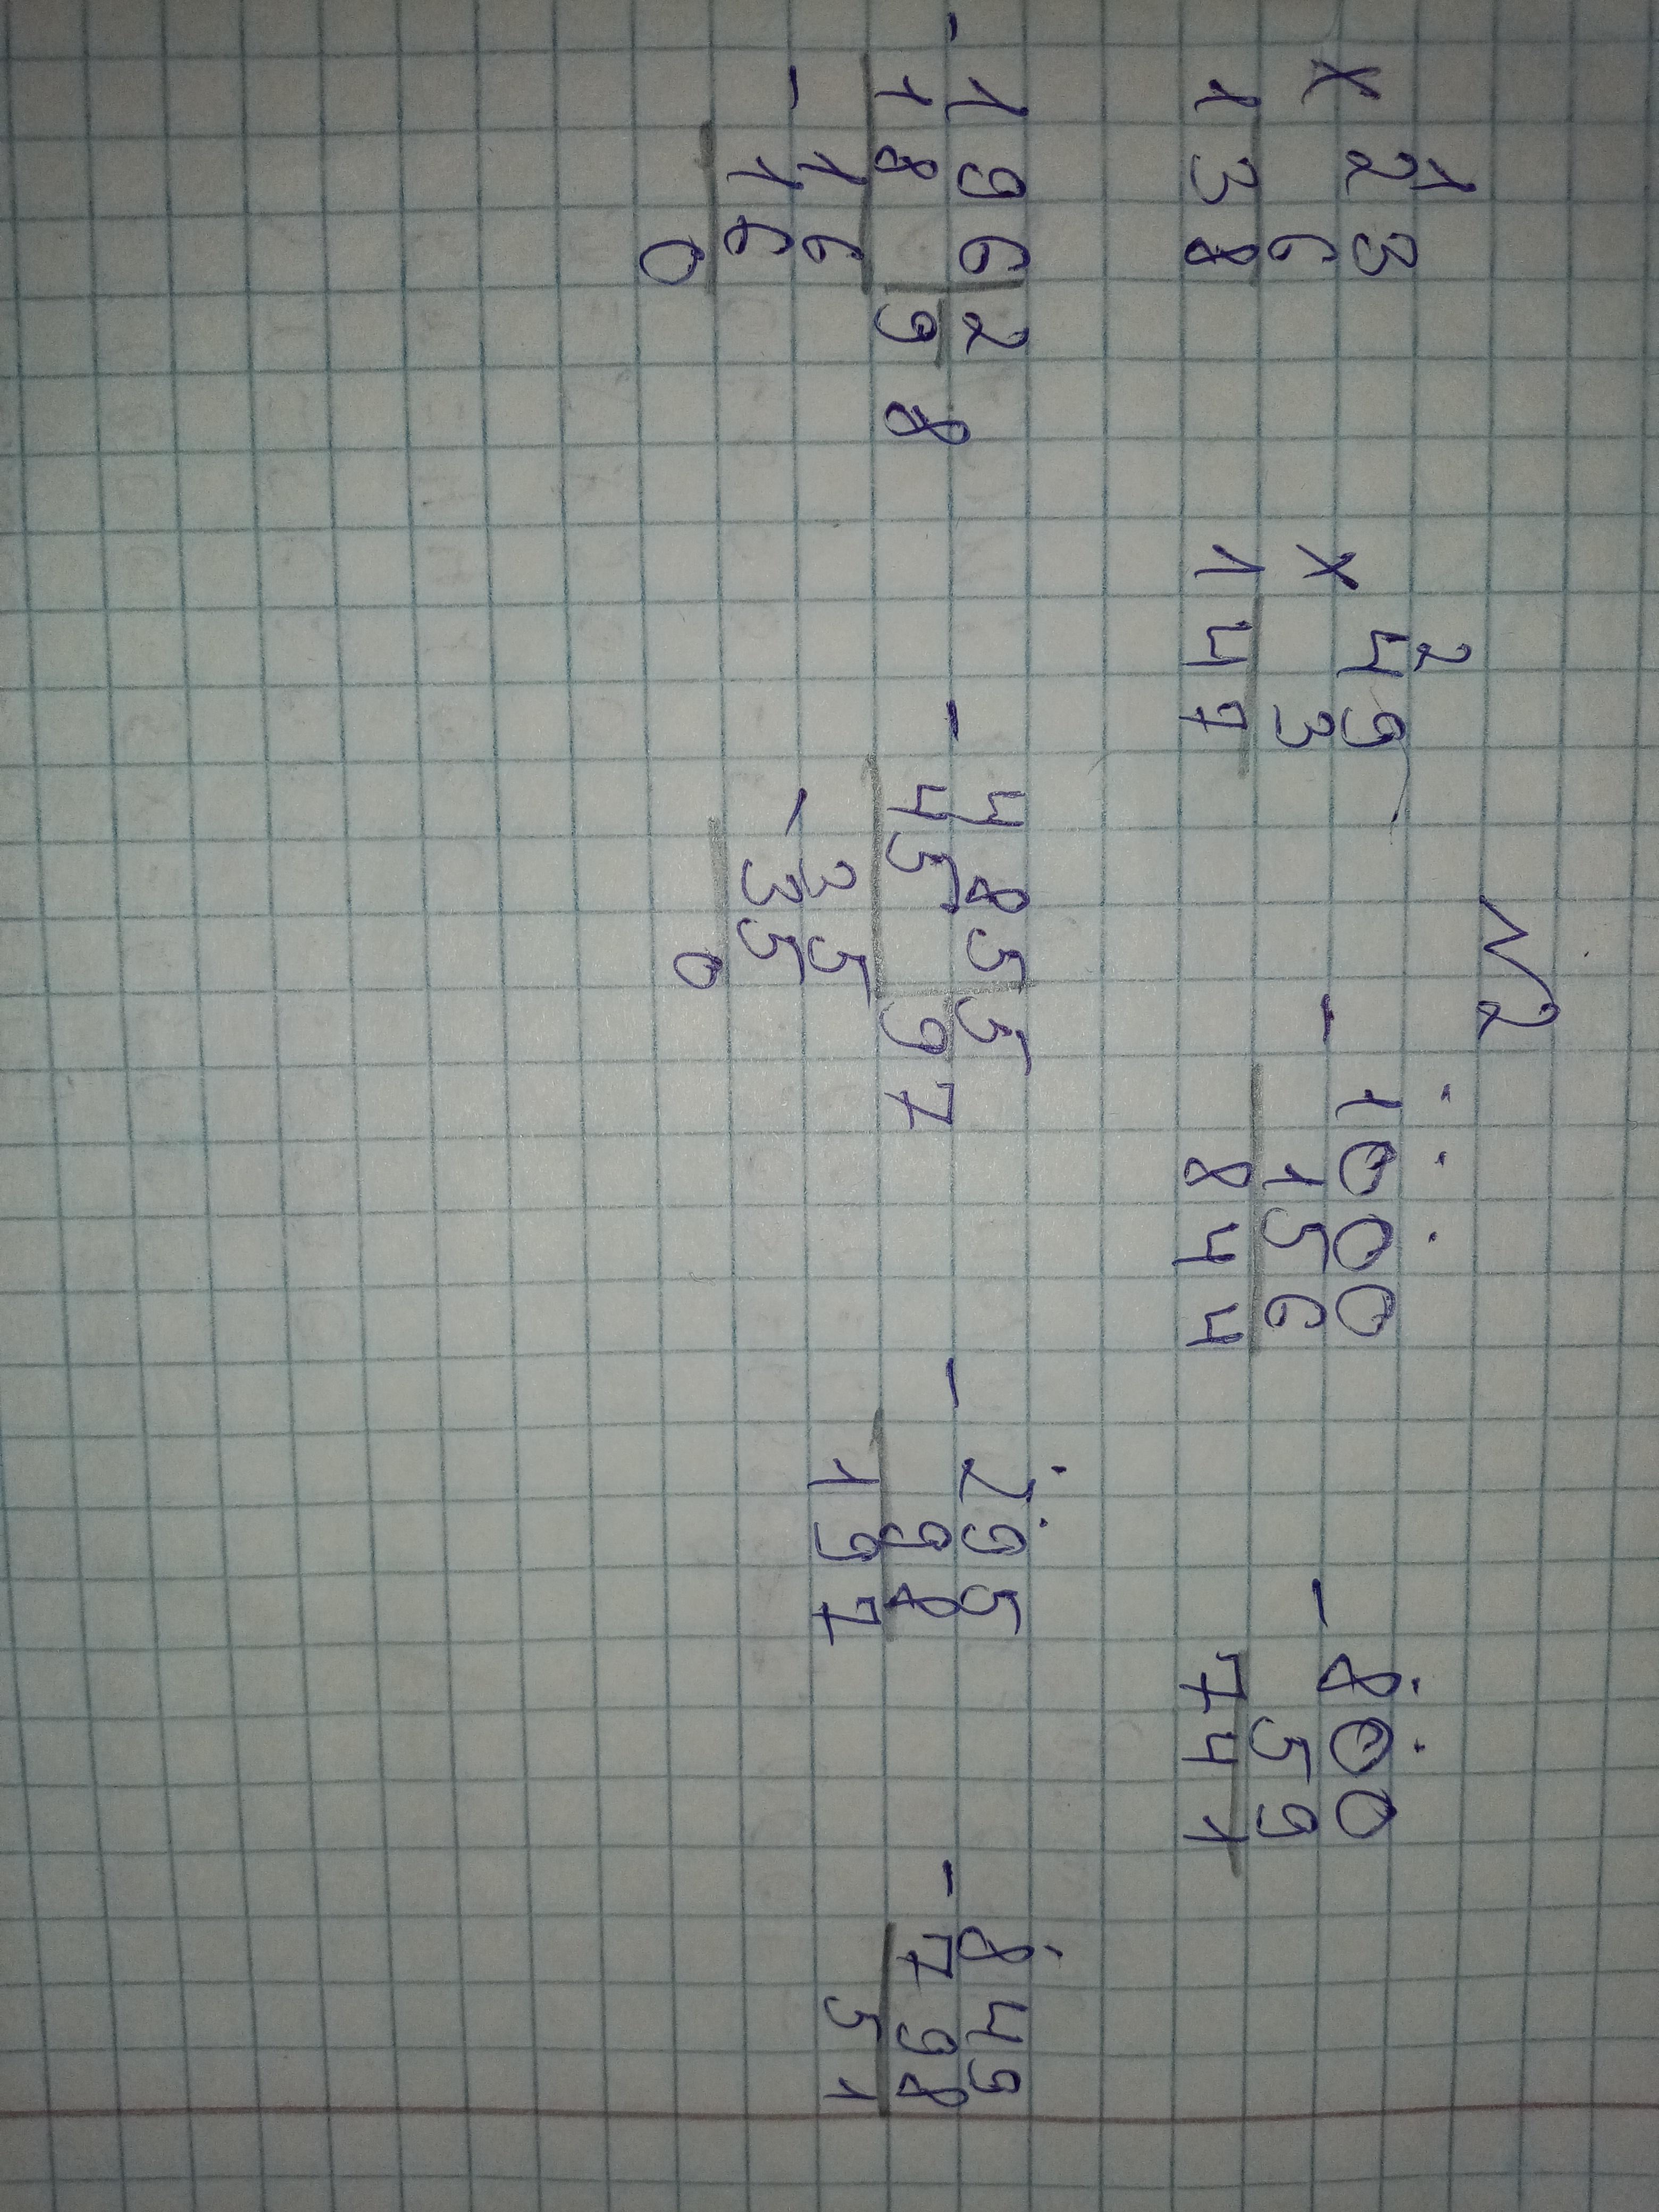 N2
1 2
23 49 1000 800
× 6 × 3 - 156 - 59
138 147 844 741
- 196 2 - 485 5 - 295 - 849
18 98 45 97 98 798
- 16 - 35 197 51
16 35
0 0